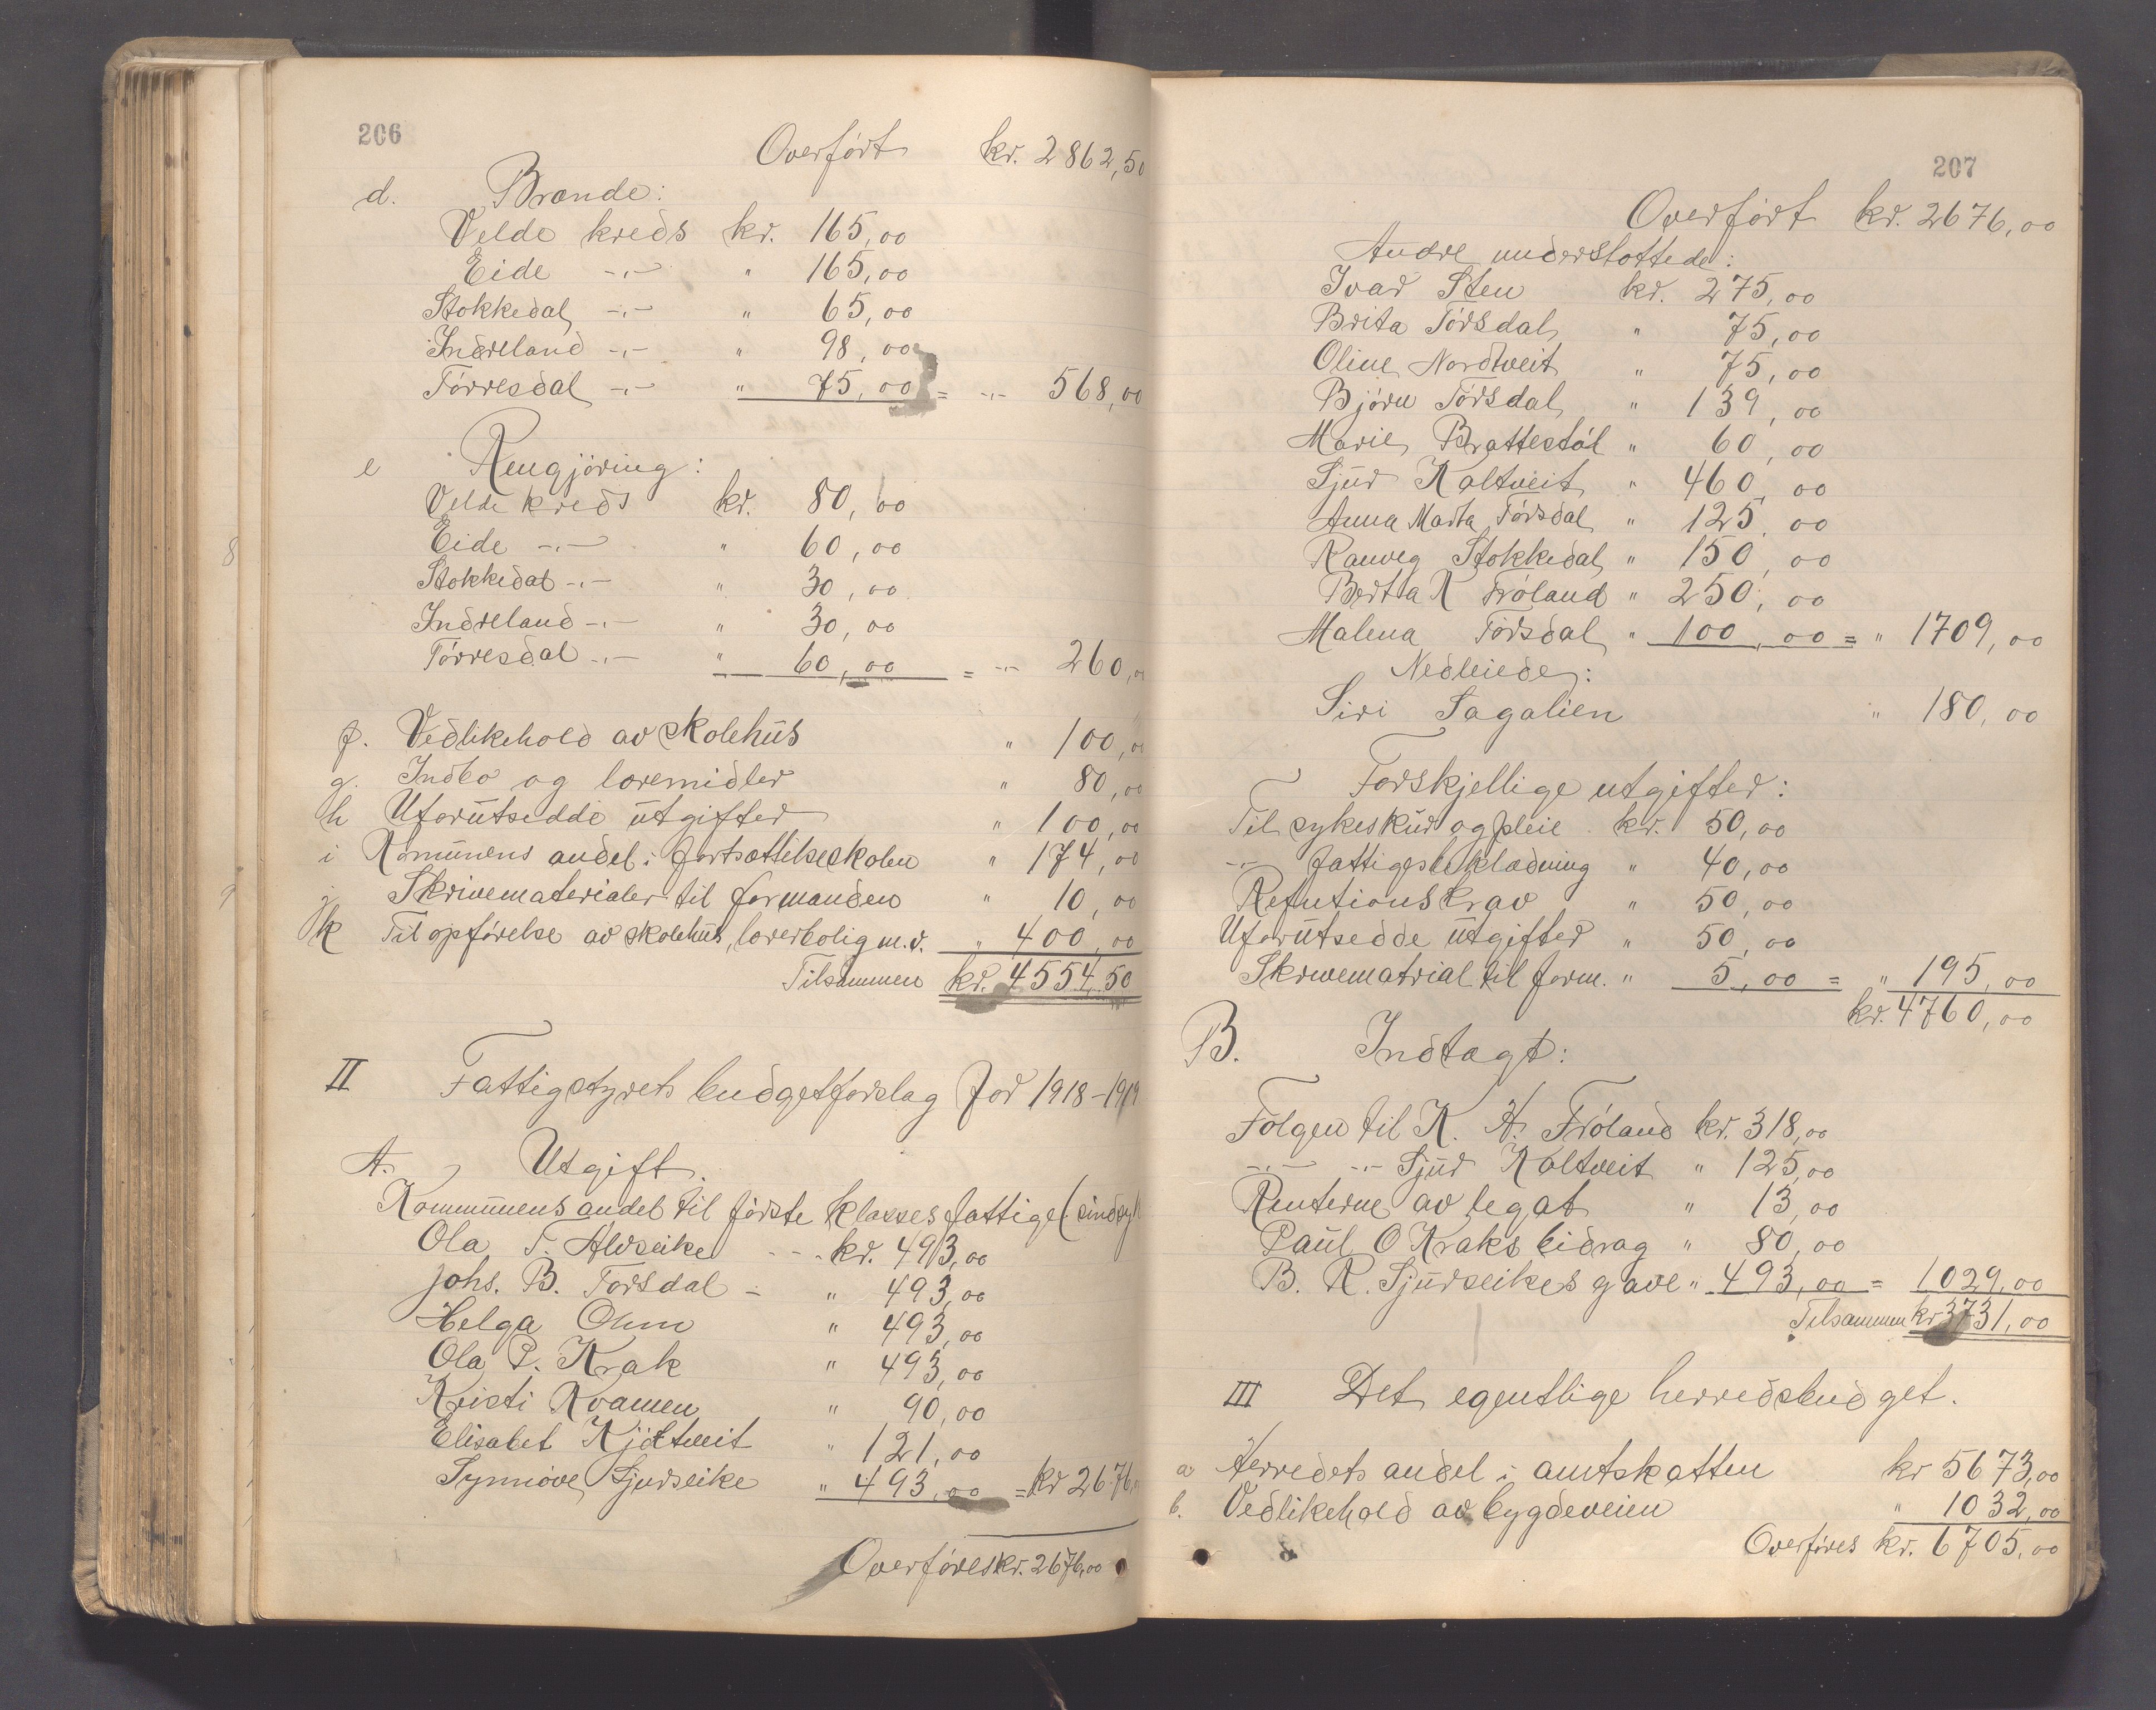 206
Overført kr. 2862,50
d. Brænde:
Velde kreds kr. 165,00
Eide -"- " 165,00
Stokkedal -"- " 65,00
Indreland -"- " 98,00
Tørresdal -"- " 75,00 = -"- 568,00
e Rengjøring:
Velde kreds kr. 80,00
Eide -"- " 60,00
Stokkedal -"- " 30,00
Indreland -"- " 30,00
Tørresdal -"- " 60,00 = -"- 260,00
f. Vedlikehold av skolehus " 100,00
g. Indbo og læremidler " 80,00
h Uforutsedde utgifter " 100,00
i Komunens andel i fortsættelseskolen " 174,00
j Skrivematerialer til formanden " 10,00
k Til opførelse av skolehus, lærerbolig m.v. " 400,00
Tilsammen kr. 4554,50
II Fattigstyrets budgetforslag for 1918-1919
A. Utgift.
Kommunens andel til første klasses fattige (sindsy
Ola T. Alvseike kr. 493,00
Johs. B. Torsdal - " 493,00
Helga Ohm " 493,00
Ola P. Krak " 493,00
Kristi Kvamen " 90,00
Elisabet Kjøltveit " 121,00
Synnøve Sjurseike " 493,00 = kr 2676,
Overføres kr. 2676,00
207
Overført kr. 2676,00
Andre understøttede:
Ivar Sten kr. 275,00
Brita Tørsdal " 75,00
Oline Nordtveit " 75,00
Bjørn Tørsdal " 139,00
Marie Brattestøl " 60,00
Sjur Kaltveit " 460,00
Anna Marta Tørsdal " 125,00
Ranveg Stokkedal " 150,00
Berta K Frøland " 250,00
Malena Tørsdal " 100,00 = " 1709,00
Nedleiede:
Siri Sagalien " 180,00
Forskjellige utgifter:
Til sykeskur og pleie kr. 50,00
-"- fattiges beklædning " 40,00
Refutionskrav " 50,00
Uforutsedde utgifter " 50,00
Skrivematrial til form. " 5,00 = " 195,00
kr. 4760,00
B. Indtægt:
Følgen til K. H. Frøland kr. 318,00
-"- -"- Sjur Kaltveit " 125,00
Renterne av legat " 13,00
Paul O Kraks bidrag " 80,00
B. K. Sjurseikes gave " 493,00 = 1029,00
Tilsammen kr 3731,00
III Det egentlige herredsbudget.
a Herredets andel i amtskatten kr 5673,00
b. Vedlikehold av bygdeveien " 1032,00
Overføres kr. 6705,00